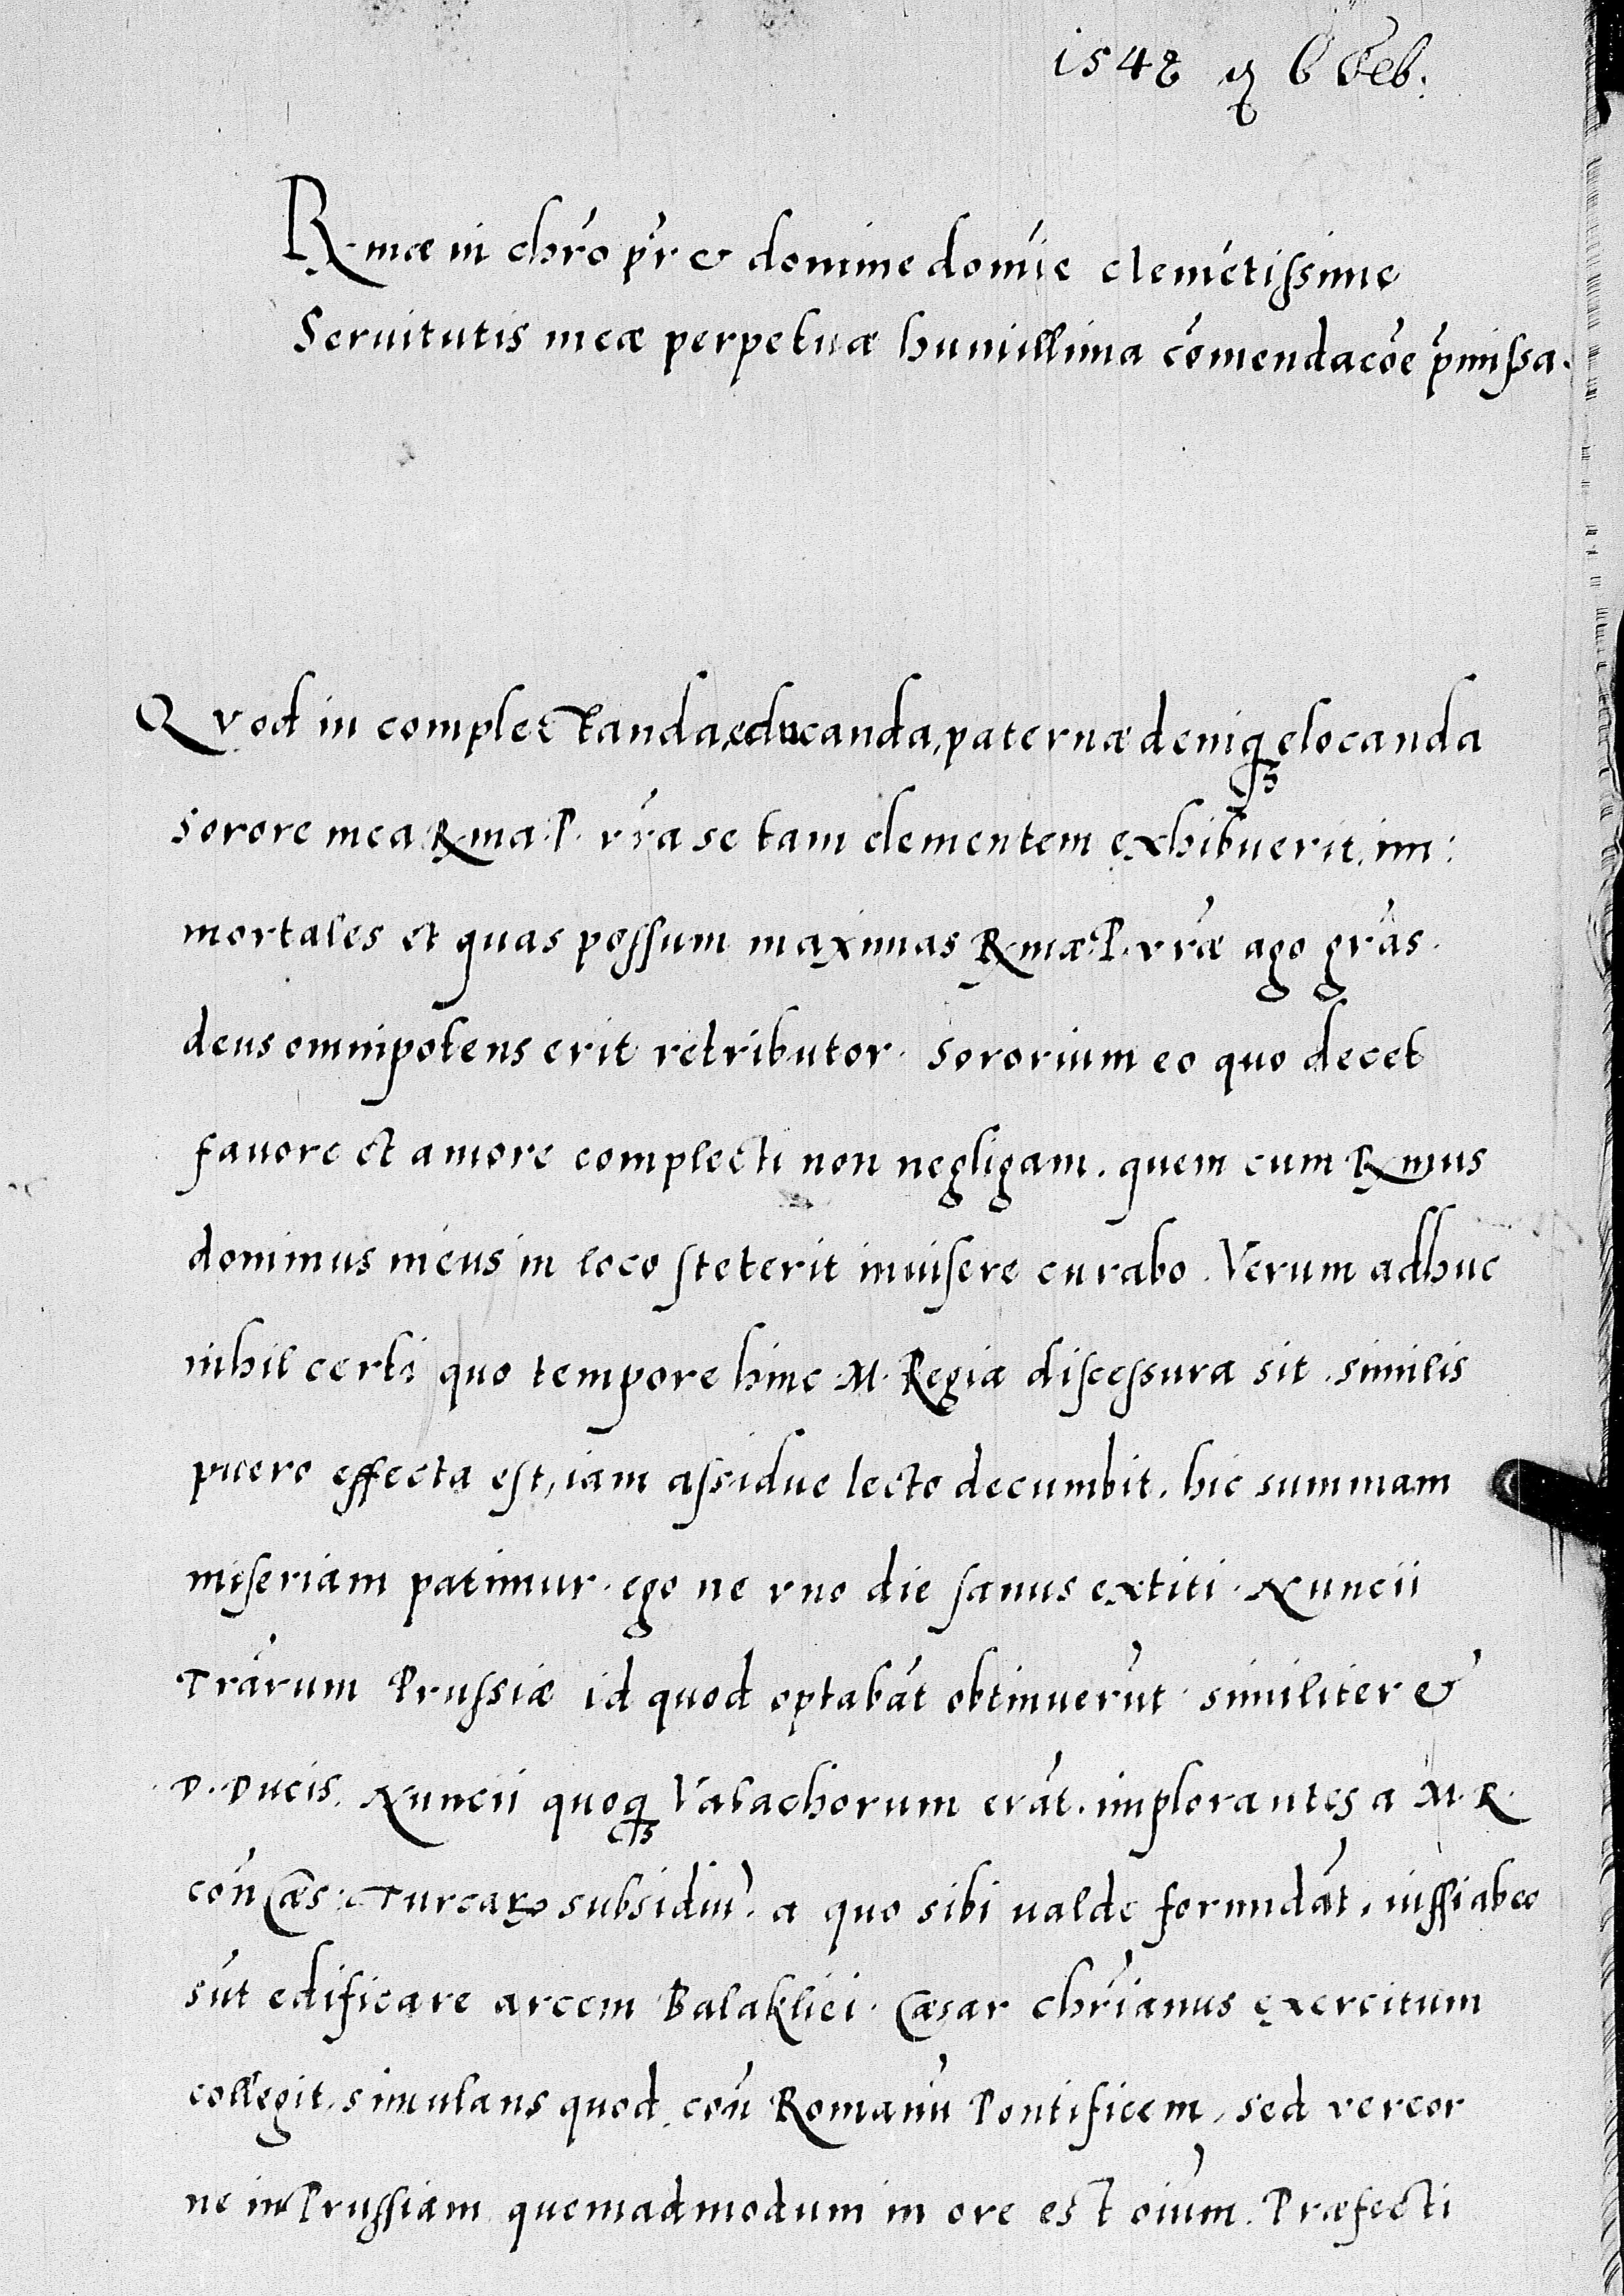 1548 6 Feb.
R-mæ in chr̄o pr̄ & domine domīe clemētissime
Seruitutis meæ perpetuæ humillima cōmendacōe p̄missa.
Qvod in complectanda, educanda, paternæ deniqꝫ elocanda
sorore mea R-ma. P. vr̄a se tam clementem exhibuerit. im:
mortales et quas possum maximas R-mæ. P. vr̄æ ago gr̄as.
deus omnipotens erit retributor. Sororium eo quo decet
fauore et amore complecti non negligam. quem cum R-mus
dominus meus in loco steterit inuisere curabo. Verum adhuc
nihil certi quo tempore hinc .M. Regia discessura sit. similis
puero effecta est, iam assidue lecto decumbit. hic summam
miseriam patimur. ego ne vno die sanus extiti. Nuncii
Trārum Prussiæ id quod optabāt obtinuerūt. similiter &
D. Ducis. Nuncii quoqꝫ Valachorum erāt. implorantes a M. R.
cōn Cæs: Turcaꝝ subsidiū. a quo sibi ualde formidāt. iussi ab eo
sūt edificare arcem Balakliei. Cæsar chr̄ianus exercitum
collegit. simulans quod cōn Romanū Pontificem. sed vereor
ne in Prussiam quemadmodum in ore est oīum. Præfecti